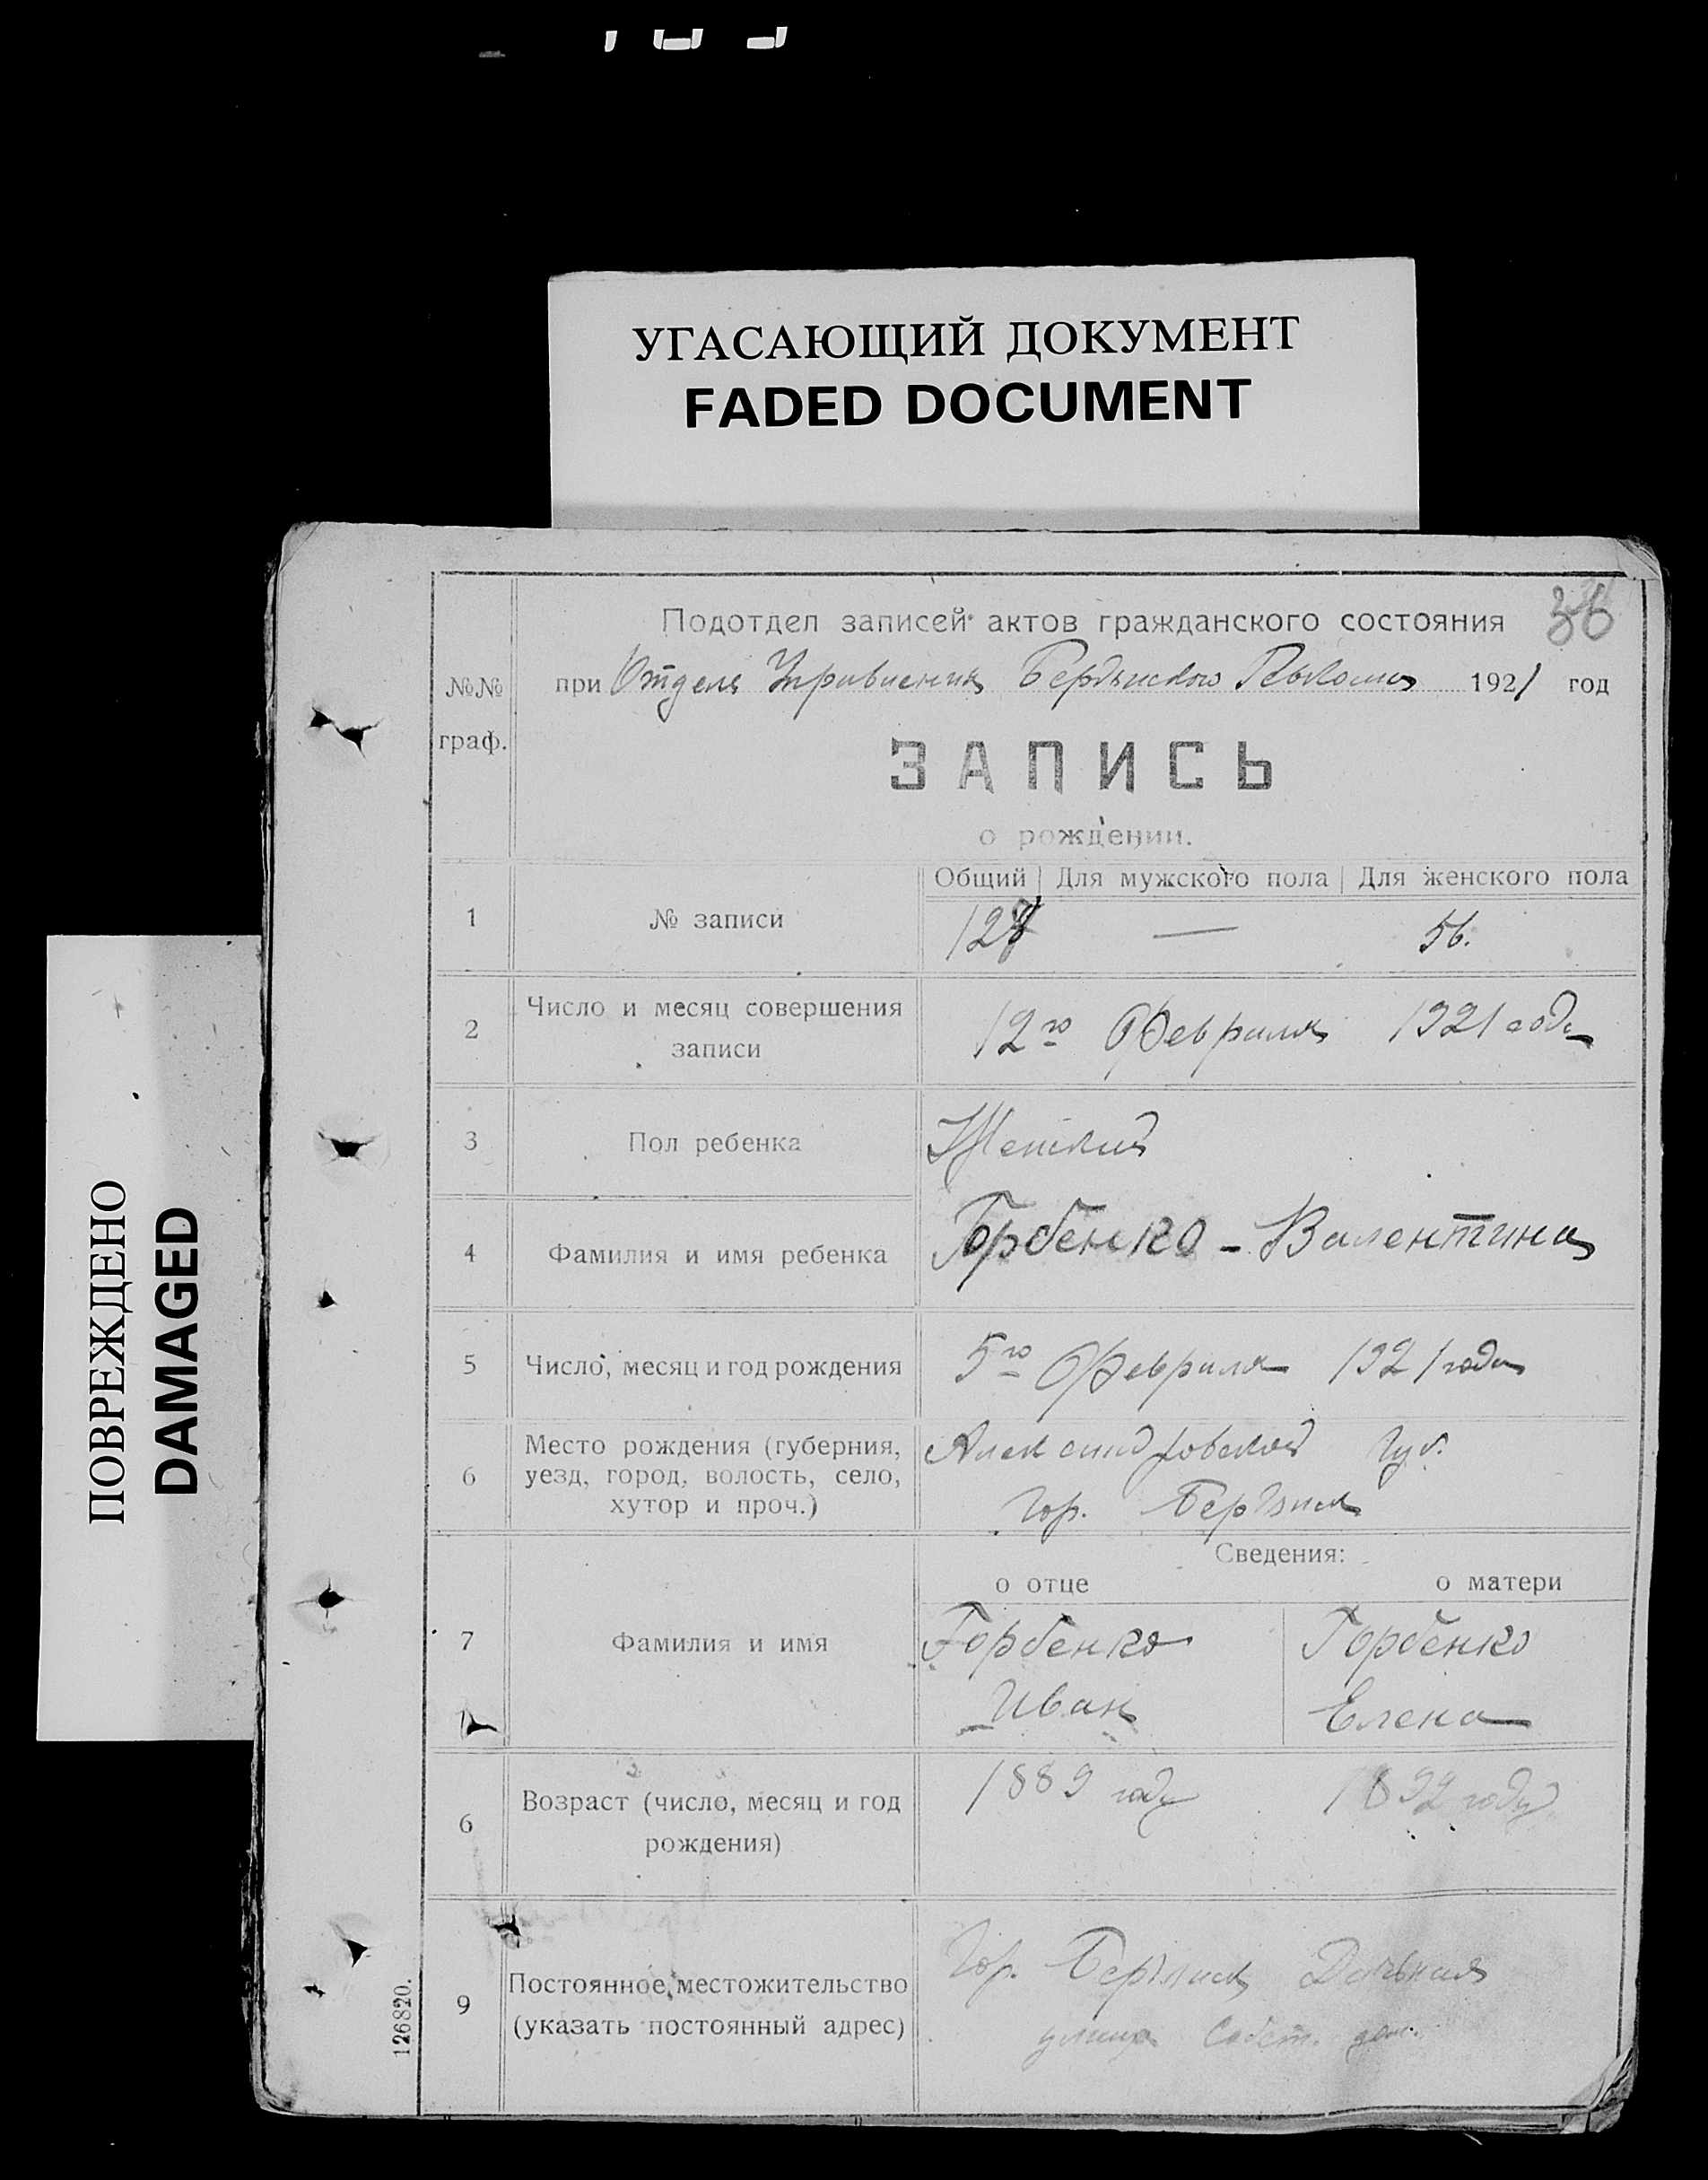 УГАСАЮЩИЙ ДОКУМЕНТ
FADED DOCUMENT
ПОВРЕЖДЕНО
DAMAGED
36
Подотдел записей актов гражданского состояния
№№ граф.
при Отделе Управления Бердянского 1921 год
ЗАПИСЬ
о рождении.
Общий | Для мужского пола | Для женского пола
1 № записи 128 — 56.
2 Число и месяц совершения записи 12го Февраля 1921 года
3 Пол ребенка Женский
4 Фамилия и имя ребенка Горбенко - Валентина
5 Число, месяц и год рождения 5го Февраля 1921 года
6 Место рождения (губерния, уезд, город, волость, село, хутор и проч.) Александровской губ.
гор. Бердянск
Сведения:
о отце о матери
7 Фамилия и имя Горбенко Горбенко
Иван Елена
6 Возраст (число, месяц и год рождения) 1889 году 1892 году
9 Постоянное местожительство (указать постоянный адрес) Гор. Бердянск
улица собст. дом.
126820.